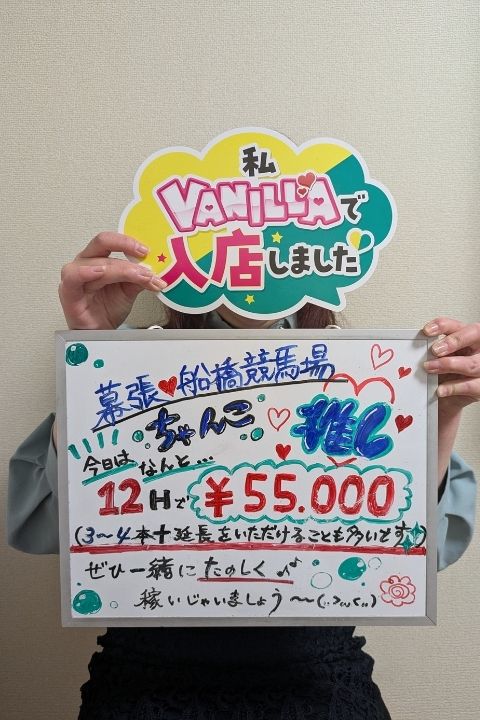 私
VANILLAで
入店しました
幕張♥船橋競馬場
ちゃんこ 推し
今日は なんと...
12Hで ¥55.000
(3〜4本十延長をいただけることも多いです)
ぜひ一緒に たのしく♪♪
稼いじゃいましょう〜